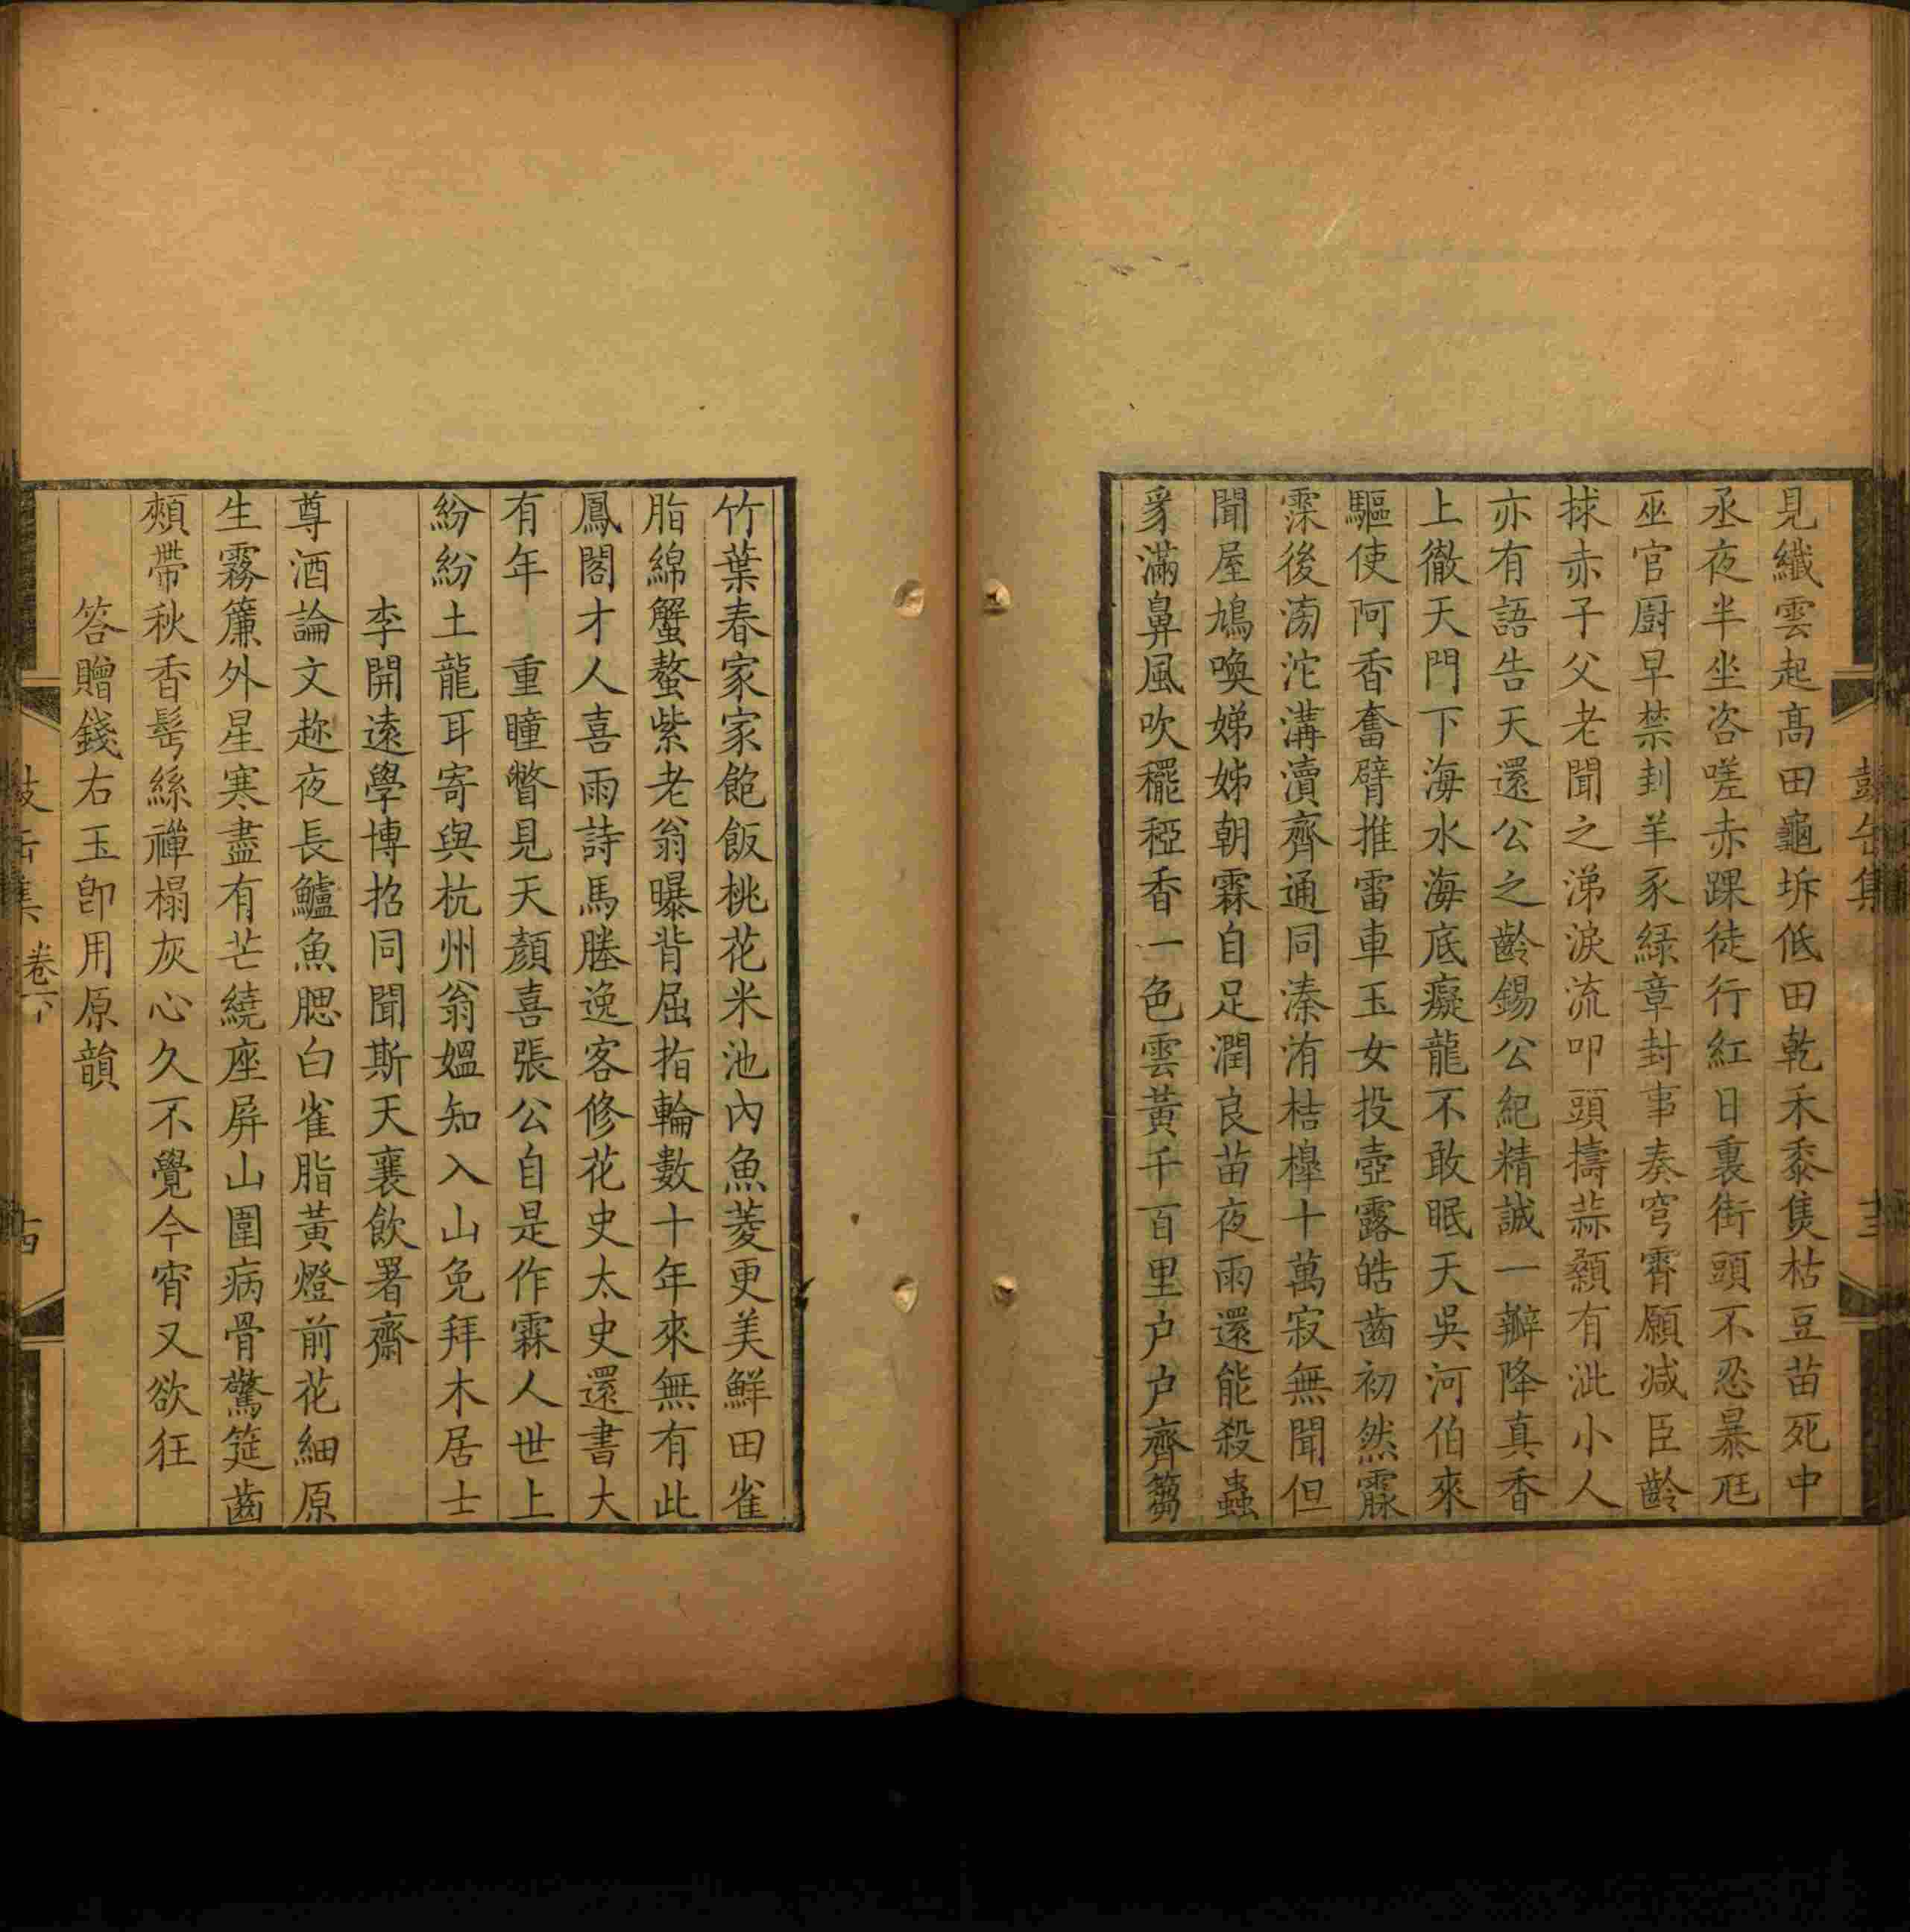 見纖雲起高田龜坼低田乾禾黍隻枯豆苗死中
丞夜半坐咨嗟赤踝徒行紅日裏街頭不忍暴尫
巫官厨早禁刲羊豕緑章封事奏穹霄願减臣齡
捄赤子父老聞之涕淚流叩頭擣蒜顙有泚小人
亦有語告天還公之齡錫公紀精誠一瓣降真香
上徹天門下海水海底癡龍不敢眠天吳河伯來
驅使阿香奮臂推雷車玉女投壺露皓齒初然霢
霂後滂沱溝瀆齊通同溱洧桔橰十萬寂無聞但
聞屋鳩喚娣姊朝霖自足潤良苗夜雨還能殺蟲
豸滿鼻風吹䆉稏香一色雲黃千百里户户齊篘
竹葉春家家飽飯桃花米池內魚菱更美鮮田雀
脂綿蟹螯紫老翁曝背屈指輪數十年來無有此
鳳閣才人喜雨詩馬塍逸客修花史太史還書大
有年 重瞳瞥見天顏喜張公自是作霖人世上
紛紛土龍耳寄與杭州翁媼知入山免拜木居士
李開遠學博招同聞斯天襄飲署齋
尊酒論文趂夜長鱸魚腮白雀脂黃燈前花細原
生霧簾外星寒盡有芒繞座屏山圍病骨驚筵齒
頰帶秋香髩絲禪榻灰心久不覺今宵又欲狂
答贈錢右玉卽用原韻
卷下